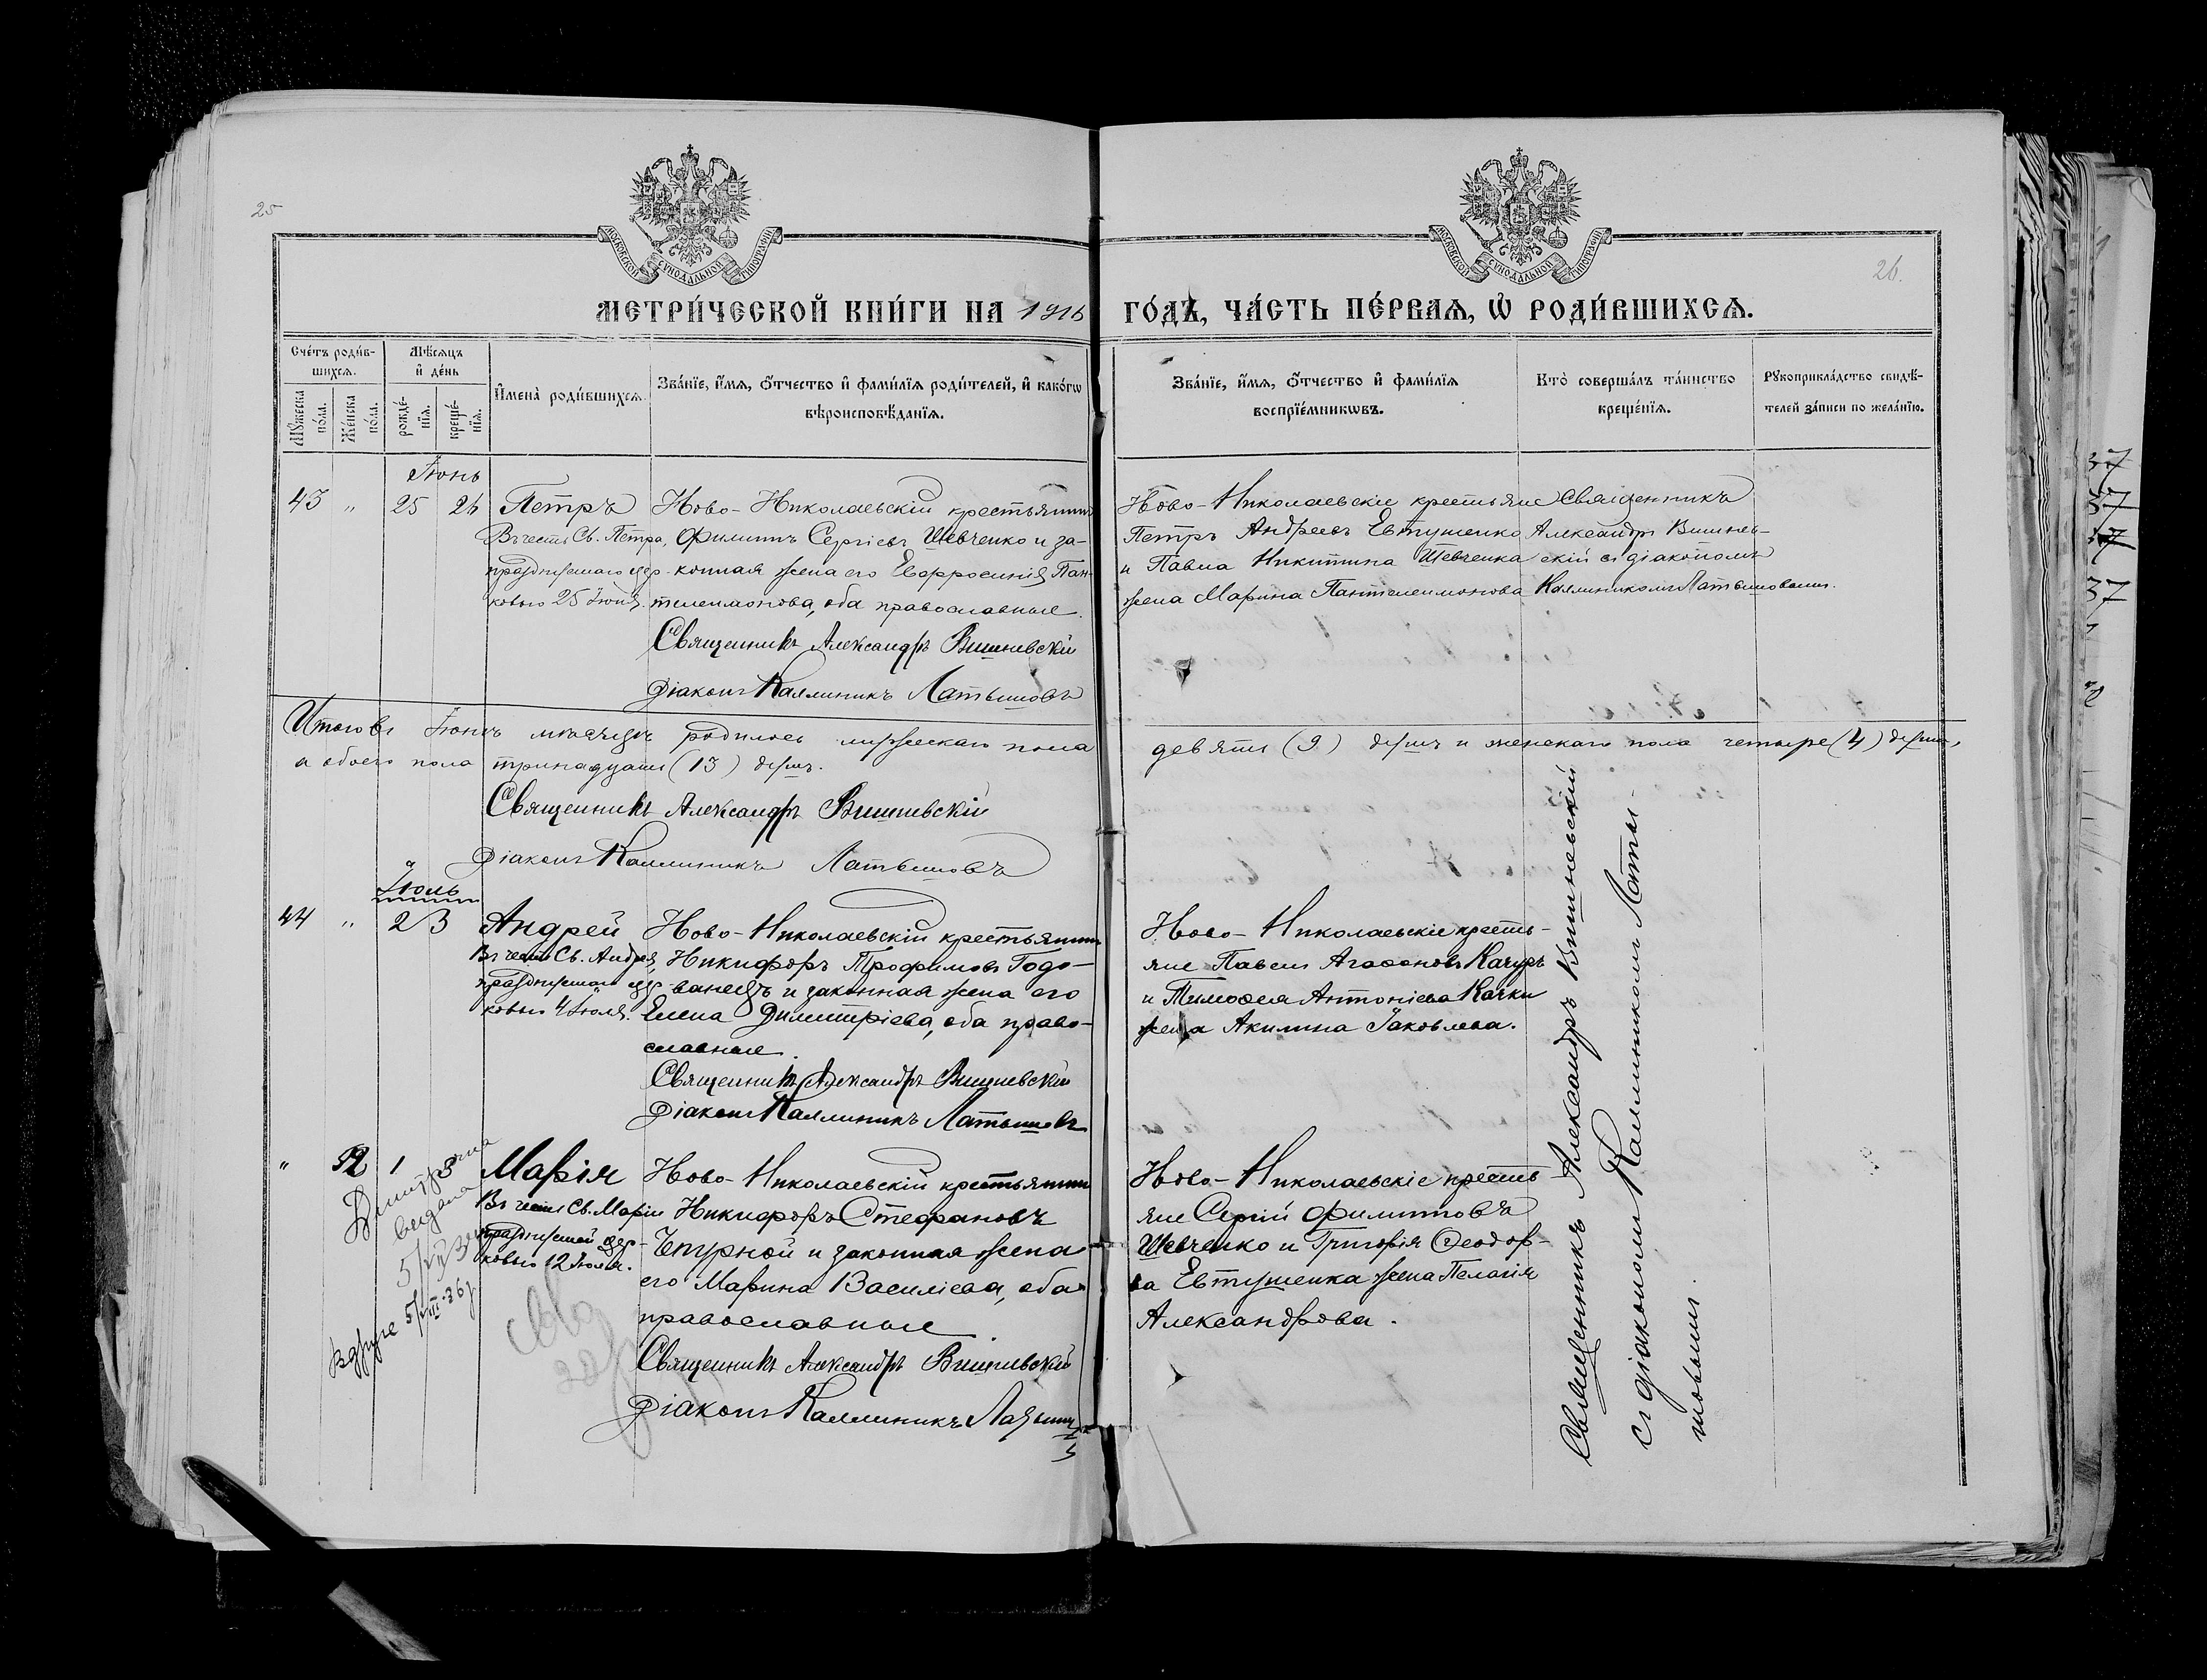 25
26.
МОСКОВСКОЙ СѴНОДАЛЬНОЙ ТИПОГРАФІИ
МОСКОВСКОЙ СѴНОДАЛЬНОЙ ТИПОГРАФІИ
МЕТРИ́ЧЕСКОЙ КНИ́ГИ НА 1916 ГО́ДЪ, ЧА́СТЬ ПЕ́РВАѦ, Ѡ РОДИ́ВШИХСѦ.
Сче́тъ роди́в-
шихсѧ.
Мꙋжеска по́ла.
Же́нска по́ла.
Мѣ́сѧцъ и҆ де́нь
рожде́-
нїѧ.
креще́-
нїѧ.
И҆мена̀ роди́вшихсѧ.
Зва́нїе, и҆́мѧ, ѻ҆́тчество и҆ фами́лїѧ роди́телей, и҆ како́гѡ
вѣроисповѣ́данїѧ.
Зва́нїе, и҆́мѧ, ѻ҆́тчество и҆ фами́лїѧ
воспрїе́мникѡвъ.
Кто̀ соверша́лъ та́инство
креще́нїѧ.
Рꙋкоприкла́дство свидѣ́-
телей за́писи по жела́нїю.
Іюнь
43 " 25 26 Петръ
Въ честь Св. Петра,
празднуемаго цер-
ковью 25 Іюня.
Ново-Николаевскій крестьянинъ
Филиппъ Сергіевъ Шевченко и за-
конная жена его Евфросинія Пан-
телеимонова, оба православные.
Священникъ Александръ Вишневскій
Діаконъ Каллиникъ Латышовъ
Ново-Николаевскіе крестьяне
Петръ Андреевъ Евтушенко
и Павла Никитина Шевченка
жена Марина Пантелеимонова
Священникъ
Александръ Вишнев-
скій съ діакономъ
Каллиникомъ Латышовымъ.
Итого въ Іюнѣ мѣсяцѣ родилось мужескаго пола девять (9) душъ и женскаго пола четыре (4) души,
а обоего пола тринадцать (13) душъ.
Священникъ Александръ Вишневскій
Діаконъ Каллиникъ Латышовъ
Іюль
44 " 2 3 Андрей
Въ честь Св. Андрея,
празднуемаго цер-
ковью 4 Іюля.
Ново-Николаевскій крестьянинъ
Никифоръ Трофимовъ Годо-
ванецъ и законная жена его
Елена Димитріева, оба право-
славные.
Священникъ Александръ Вишневскій
Діаконъ Каллиникъ Латышовъ
Ново-Николаевскіе кресть-
яне Павелъ Агаѳоновъ Качуръ
и Тимоѳея Антоніева Качки
жена Акилина Іаковлева.
Священникъ Александръ Вишневскій
съ діакономъ Каллиникомъ Латы-
шовымъ.
" 1 3 Марія
Въ честь Св. Маріи
празднуемой цер-
ковью 12 Іюля.
Ново-Николаевскій крестьянинъ
Никифоръ Стефановъ
Чепурной и законная жена
его Марина Василіева, оба
православные.
Священникъ Александръ Вишневскій
Діаконъ Каллиникъ
Ново-Николаевскіе кресть
яне Сергій Филипповъ
Шевченко и Григорія Ѳеодор-
ва Евтушенка жена Пелагія
Александрова.
выдана
5/VIII-36
37
37
37